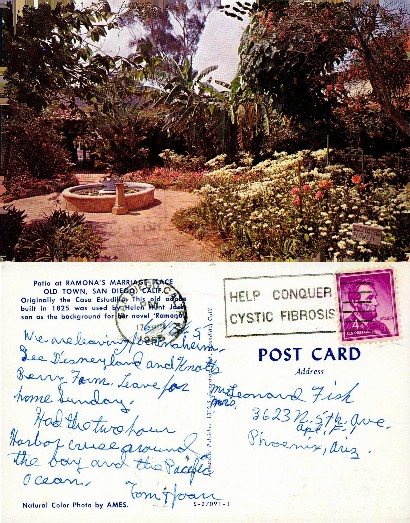 Patio at RAMONA'S MARRIAGE PLACE
OLD TOWN, SAN DIEGO, CALIF.
Originally the Casa Estudillo. This old adobe
built in 1825 was used by Helen Hunt Jack-
son as the background for her novel "Ramona".
HELP CONQUER
CYSTIC FIBROSIS
4¢
We are leaving for Anaheim.
See Disneyland and Knotts
Berry Farm. Leave for
home Sunday.
Had the two hour
Harbor cruise around
the bay and the Pacific
Ocean.
Tom & Joan
POST CARD
Address
Mr. Leonard Fish
Mrs.
3623 N. 5th Ave.
Apt. F-1
Phoenix, Ariz.
Natural Color Photo by AMES.
S-27091-1